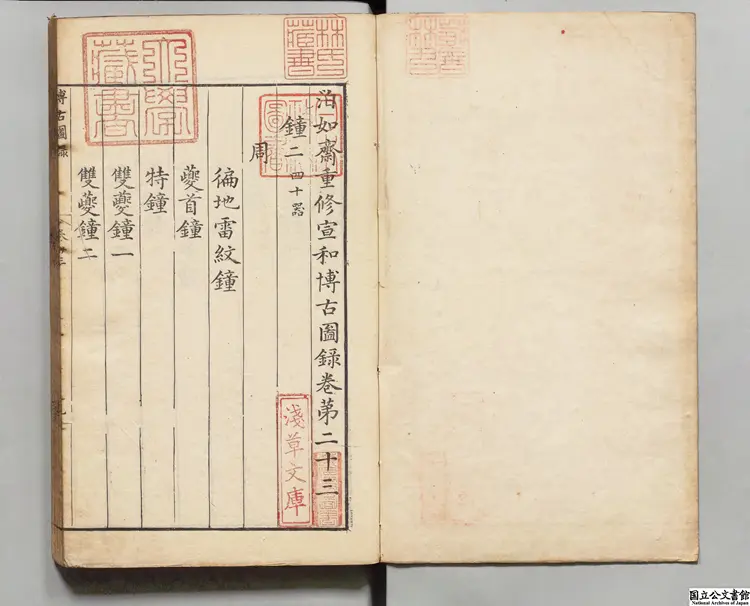 泊如齋重修宣和博古圖錄卷第二十三
鐘二 四十器
周
徧地雷紋鐘
夔首鐘
特鐘
雙夔鐘一
雙夔鐘二
博古圖錄
林氏藏書
淺草文庫
国立公文書館
National Archives of Japan